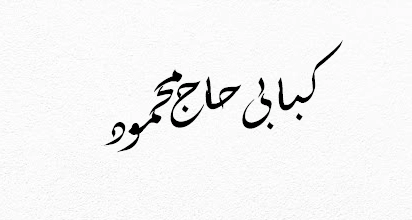 کبابی حاج محمود